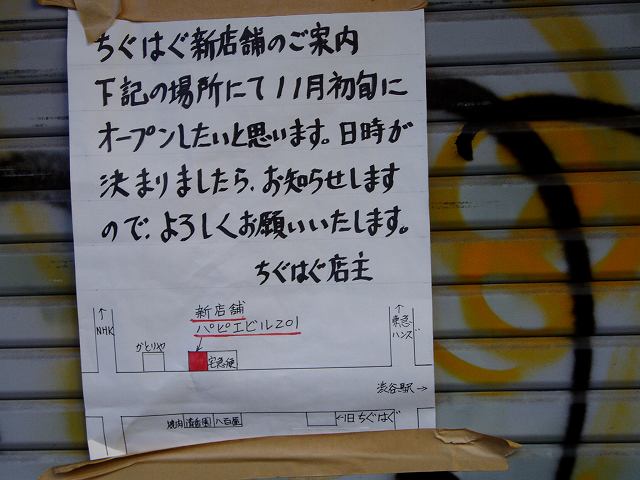 ちぐはぐ新店舗のご案内
下記の場所にて11月初旬に
オープンしたいと思います。日時が
決まりましたら、お知らせします
ので、よろしくお願いいたします。
ちぐはぐ店主
新店舗
パピエビル201
↑NHK
↑東急ハンズ
かとりや
宅急便
渋谷駅→
焼肉
八百屋
←旧ちぐはぐ